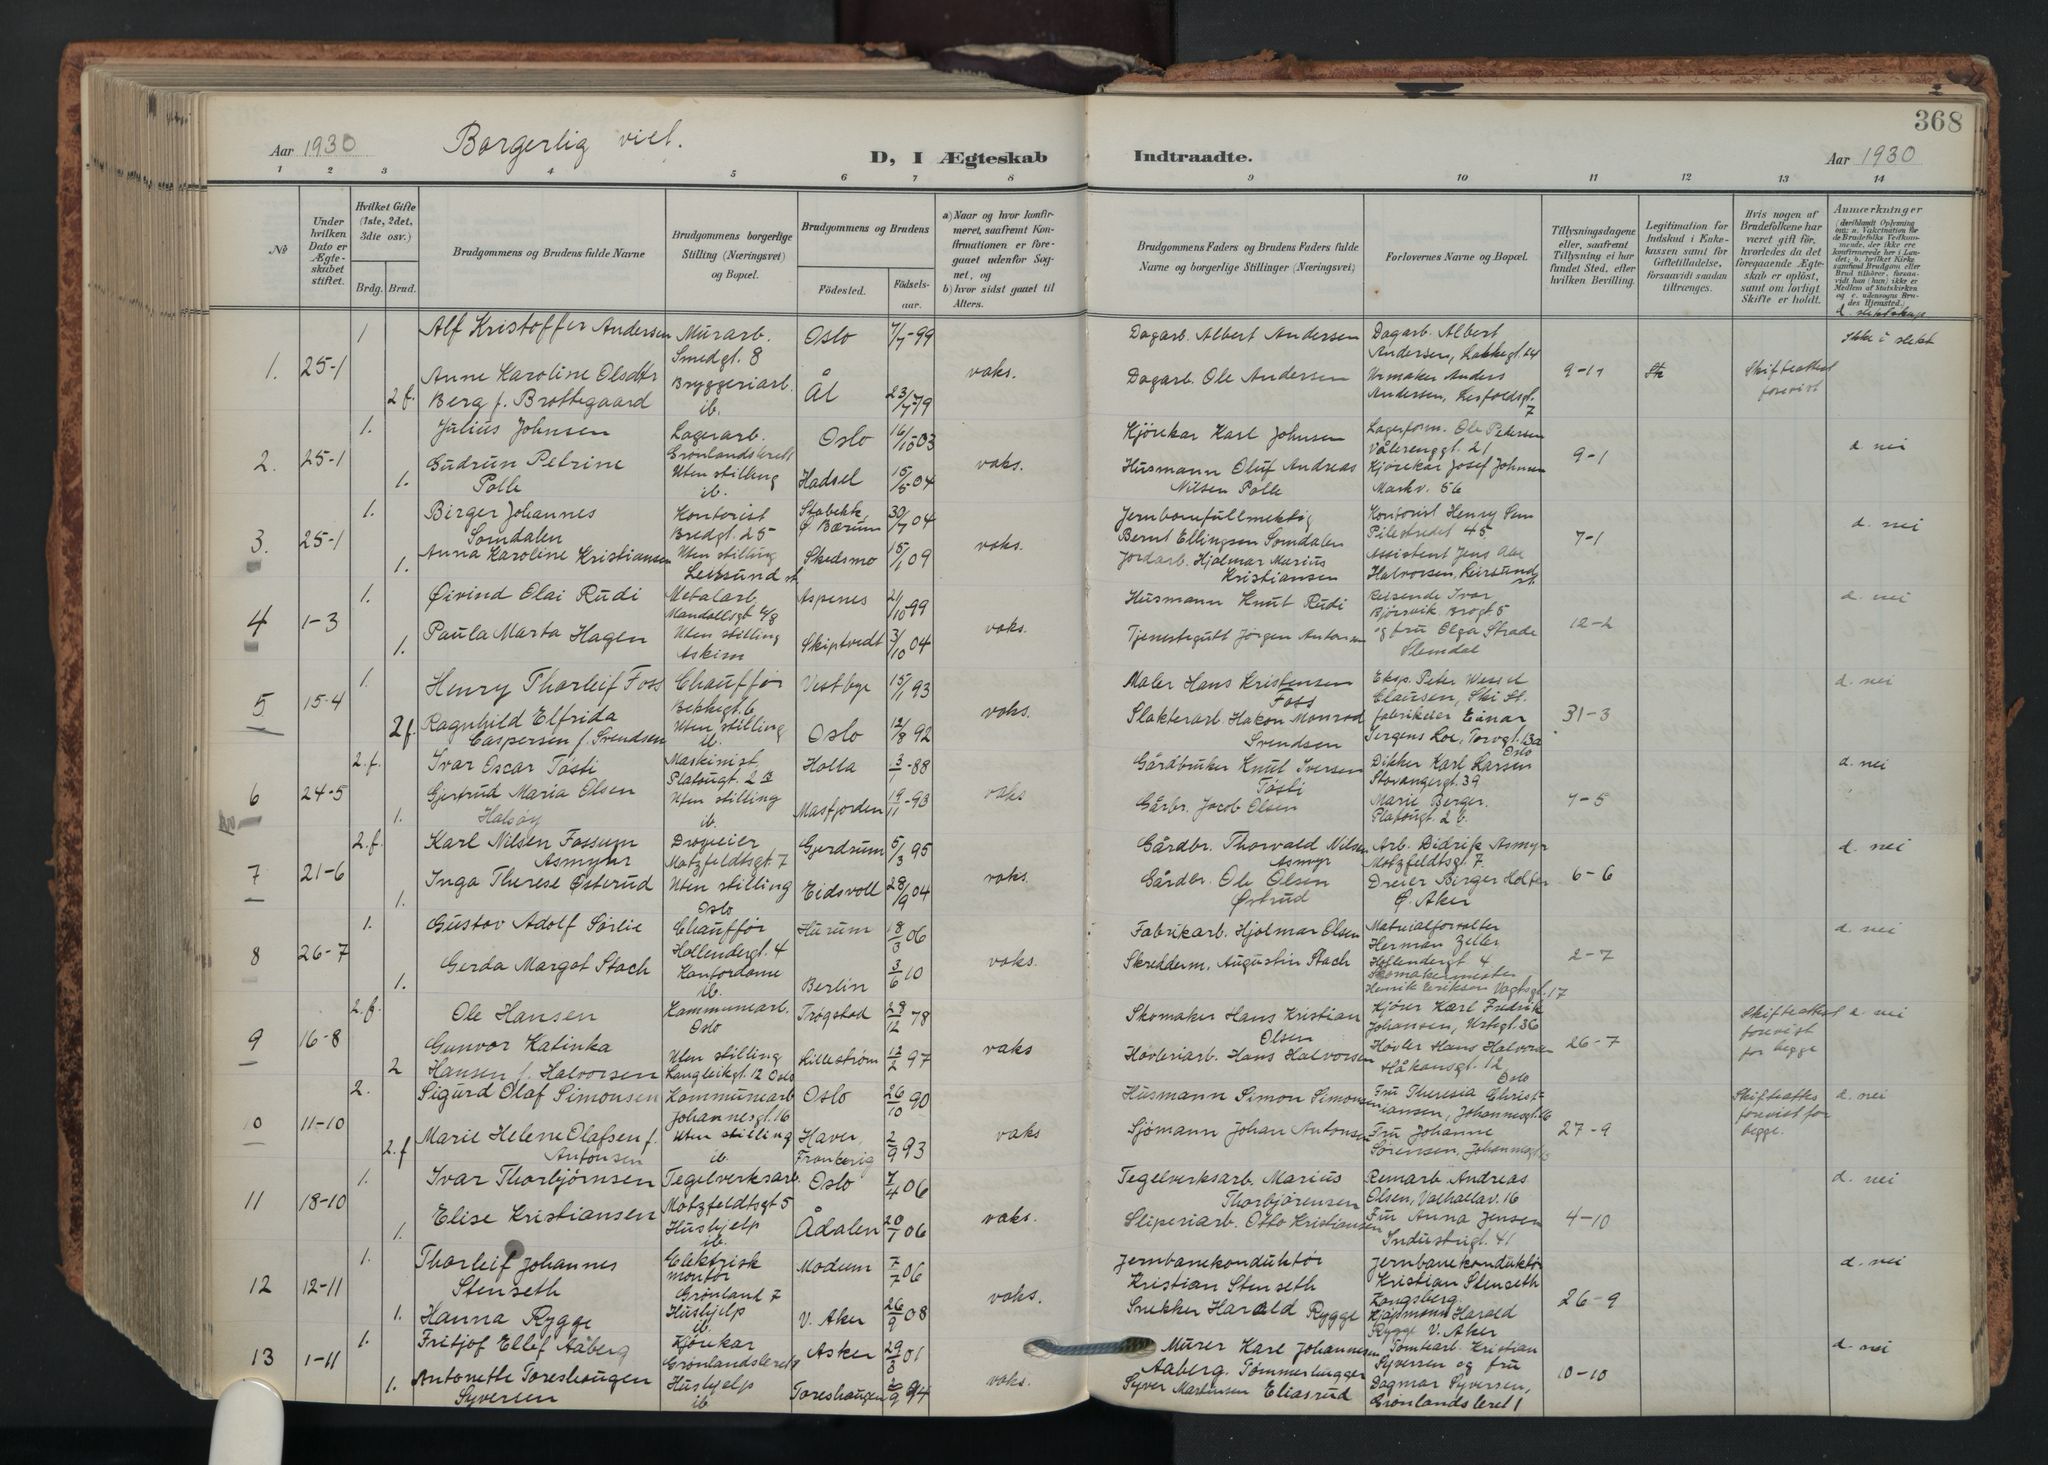 368
Aar 1930 Borgerlig viet. D, I Ægteskab Indtraadte. Aar 1930
1 2 3 4 5 6 7 8 9 10 11 12 13 14
No
Under hvilken Dato er Ægteskabet stiftet.
Hvilket Gifte (1ste, 2det, 3die osv.)
Brdg. Brud.
Brudgommens og Brudens fulde Navne
Brudgommens borgerlige Stilling (Næringsvei) og Bopæl.
Brudgommens og Brudens
Fødested. Fødselsaar.
a) Naar og hvor konfirmeret, saafremt Konfirmationen er foregaaet udenfor Sognet, og
b) hvor sidst gaaet til Alters.
Brudgommens Faders og Brudens Faders fulde Navne og borgerlige Stillinger (Næringsvei)
Forlovernes Navne og Bopæl.
Tillysningsdagene eller, saafremt Tillysning ei har fundet Sted, efter hvilken Bevilling.
Legitimation for Indskud i Enkekassen samt for Giftetilladelse, forsaavidt saadan tiltrænges.
Hvis nogen af Brudefolkene har været gift før, hvorledes da det foregaaende Ægteskab er opløst, samt om lovligt Skifte er holdt.
Anmærkninger
d. slektskap
1. 25-1 1 Alf Kristoffer Andersen Murarb. Oslo 7/7-99 Dagarb. Albert Andersen Dagarb. Albert Ikke i slekt
Smedgt. 8 Andersen, Lakkegt. 24
2 f. Anne Karoline Olsdtr Bryggeriarb. Ål 23/7-79 vaks. Dagarb. Ole Andersen Urmaker Anders 9-1 Skifteattest
Berg f. Brottegaard ib. Andersen, 7 forevist
2. 25-1 1. Julius Johnsen Lagerarb. Oslo 16/10-03 Kjørekar Karl Johnsen Lagerform. Ole Pedersen d. nei
Grønlandsleret Vålerenggt. 21
1. Gudrun Petrine Uten stilling Hadsel 15/5-04 vaks. Husmann Oluf Andreas Kjørekar Josef Johnsen 9-1
Polle ib. Nilsen Polle Markv. 56
3. 25-1 1. Birger Johannes Kontorist Stabekk 30/7 04 Jernbanfullmektig Kontorist Henry d. nei
Somdalen Bredgt. 25 Ø Bærum Bernt Ellingsen Somdalen Pilestredet 45
1. Anna Karoline Kristiansen Uten stilling Skedsmo 15/1 09 vaks. Jordarb. Hjalmar Marius Assistent Jens 7-1
Leirsund st. Kristiansen Halvorsen, Leirsund st.
4 1-3 1. Øivind Olai Rudi Metalarb. Aspenes 21/10-99 Husmann Knut Rudi Reisende Ivar d. nei
Mandallsgt 6/8 Bjørsvik Brogt 5
1. Paula Marta Hagen Uten stilling Skiptvedt 3/10 04 vaks. Tjenestegutt Jørgen Antonsen og fru Olga Strade 12-2
Askim Slemdal
5 15-4 1. Henry Tharleif Foss Chauffør Vestbye 15/1 93 Maler Hans Kristensen Eksp. Peter Wessel d. nei
Bekkegt. 6 Foss Clausen, Ski St.
2 f. Ragnhild Elfrida Uten stilling Oslo 12/8 92 vaks. Slakterarb. Hakon Monrad fabrikeier Einar 31-3
Caspersen f. Svendsen ib. Svendsen Jørgens Loe, Torvgt. 13a Oslo
6 24-5 2.f. Ivar Oscar Tosti Maskinist Holla 3/1-88 Gårdbruker Knut Iversen Dikker Karl Larsen d. nei
Platougt. 2 B Tosti Stavangergt. 39
1. Gjertrud Maria Olsen Uten stilling Masfjorden 19/11-93 vaks Gårbr. Jacob Olsen Marie Berger. 7-5
Halsøy ib. Platougt. 2 b.
7 21-6 2.f. Karl Nilsen Fossum Drogieier Gjerdrum 5/3 95 Gårdbr. Thorvald Nilsen Arb. Didrik Asmyr d. nei
Asmyhr Motzfeldtsgt 7 Asmyr Motzfeldtsgt. 7
1. Inga Therese Østerud Uten stilling Eidsvoll 28/9 04 vaks. Gårdbr. Ole Olsen Dreier Birger Holter 6-6
Oslo Østrud Ø. Aker
8 26-7 1. Gustav Adolf Sørlie Chauffør Hurum 18/3 06 Fabrikarb. Hjalmar Olsen Matrialforvalter d. nei
Hollendergt. 4 Herman Zeller
1. Gerda Margot Stach Kontordame Berlin 3/6 10 vaks. Skredderm. Augustin Stach Hollendergt 4 2-7
ib. Skomakermester
Henrik Eriksen Vogtsgt. 17
9 16-8 2.f. Ole Hansen Kommunearb. Trøgstad 28/12 78 Skomaker Hans Kristian Kjører Karl Fredrik Skifteattest d. nei
Oslo Olsen Johansen, Urtegt. 36 forevist
2 Gunvor Katinka Uten stilling Lillestrøm 12/2 97 vaks Høvleriarb. Hans Halvorsen Høvler Hans Halvorsen 26-7 for begge
Hansen f. Halvorsen Langleikgt. 12 Oslo Håkonsgt. 12 Oslo
10 11-10 2. Sigurd Olaf Simonsen Kommunearb Oslo 26/10 90 Husmann Simon Simonsen Fru Theresia Christiansen, Johannesgt. 16 Skifteattes d. nei
Johannesgt. 16 forevist for
2.f Marie Helene Olafsen f. Uten stilling Haver, 2/9 93 vaks Sjømann Johan Antonsen Fru Johanne 27-9 begge.
Antonsen ib. Frankrig Sørensen, Johannesgt.
11 18-10 1. Ivar Thorbjørnsen Tegelverksarb. Oslo 7/4 06 Tegelverksarb. Marius Remarb. Andreas d. nei
Motzfeldtsgt 5 Thorbjørensen Olsen, Valhallav. 16
1. Elise Kristiansen Hushjelp Ådalen 20/1 06 vaks. Sliperiarb. Otto Kristiansen Fru Anna Jensen 4-10
ib. Industrigt. 41
12 12-11 1. Thorleif Johannes Elektrisk Modum 7/7 06 Jernbanekonduktør Jernbanekonduktør d. nei
Stenseth montør Kristian Stenseth Kristian Stenseth
Grønland 7 Kongsberg.
1. Hanna Rygge Hushjelp V. Aker 26/9 08 vaks. Snekker Harald Rygge Kjøpmann Harald 26-9
ib. Rygge V. Aker
13 1-11 1. Fritjof Ellef Aaberg Kjørekar Asker 29/3 01 Murer Karl Johannesen Tomtearb. Kristian d. nei
Grønlandsleret Aaberg. Tømmerhugger Syversen og fru
1. Antonette Toreshaugen Hushjelp Toreshaugen 2/9 94 vaks. Syver Martinsen Eliasrud Dagmar Syversen, 10-10
Syversen ib. Grønlandsleret 1